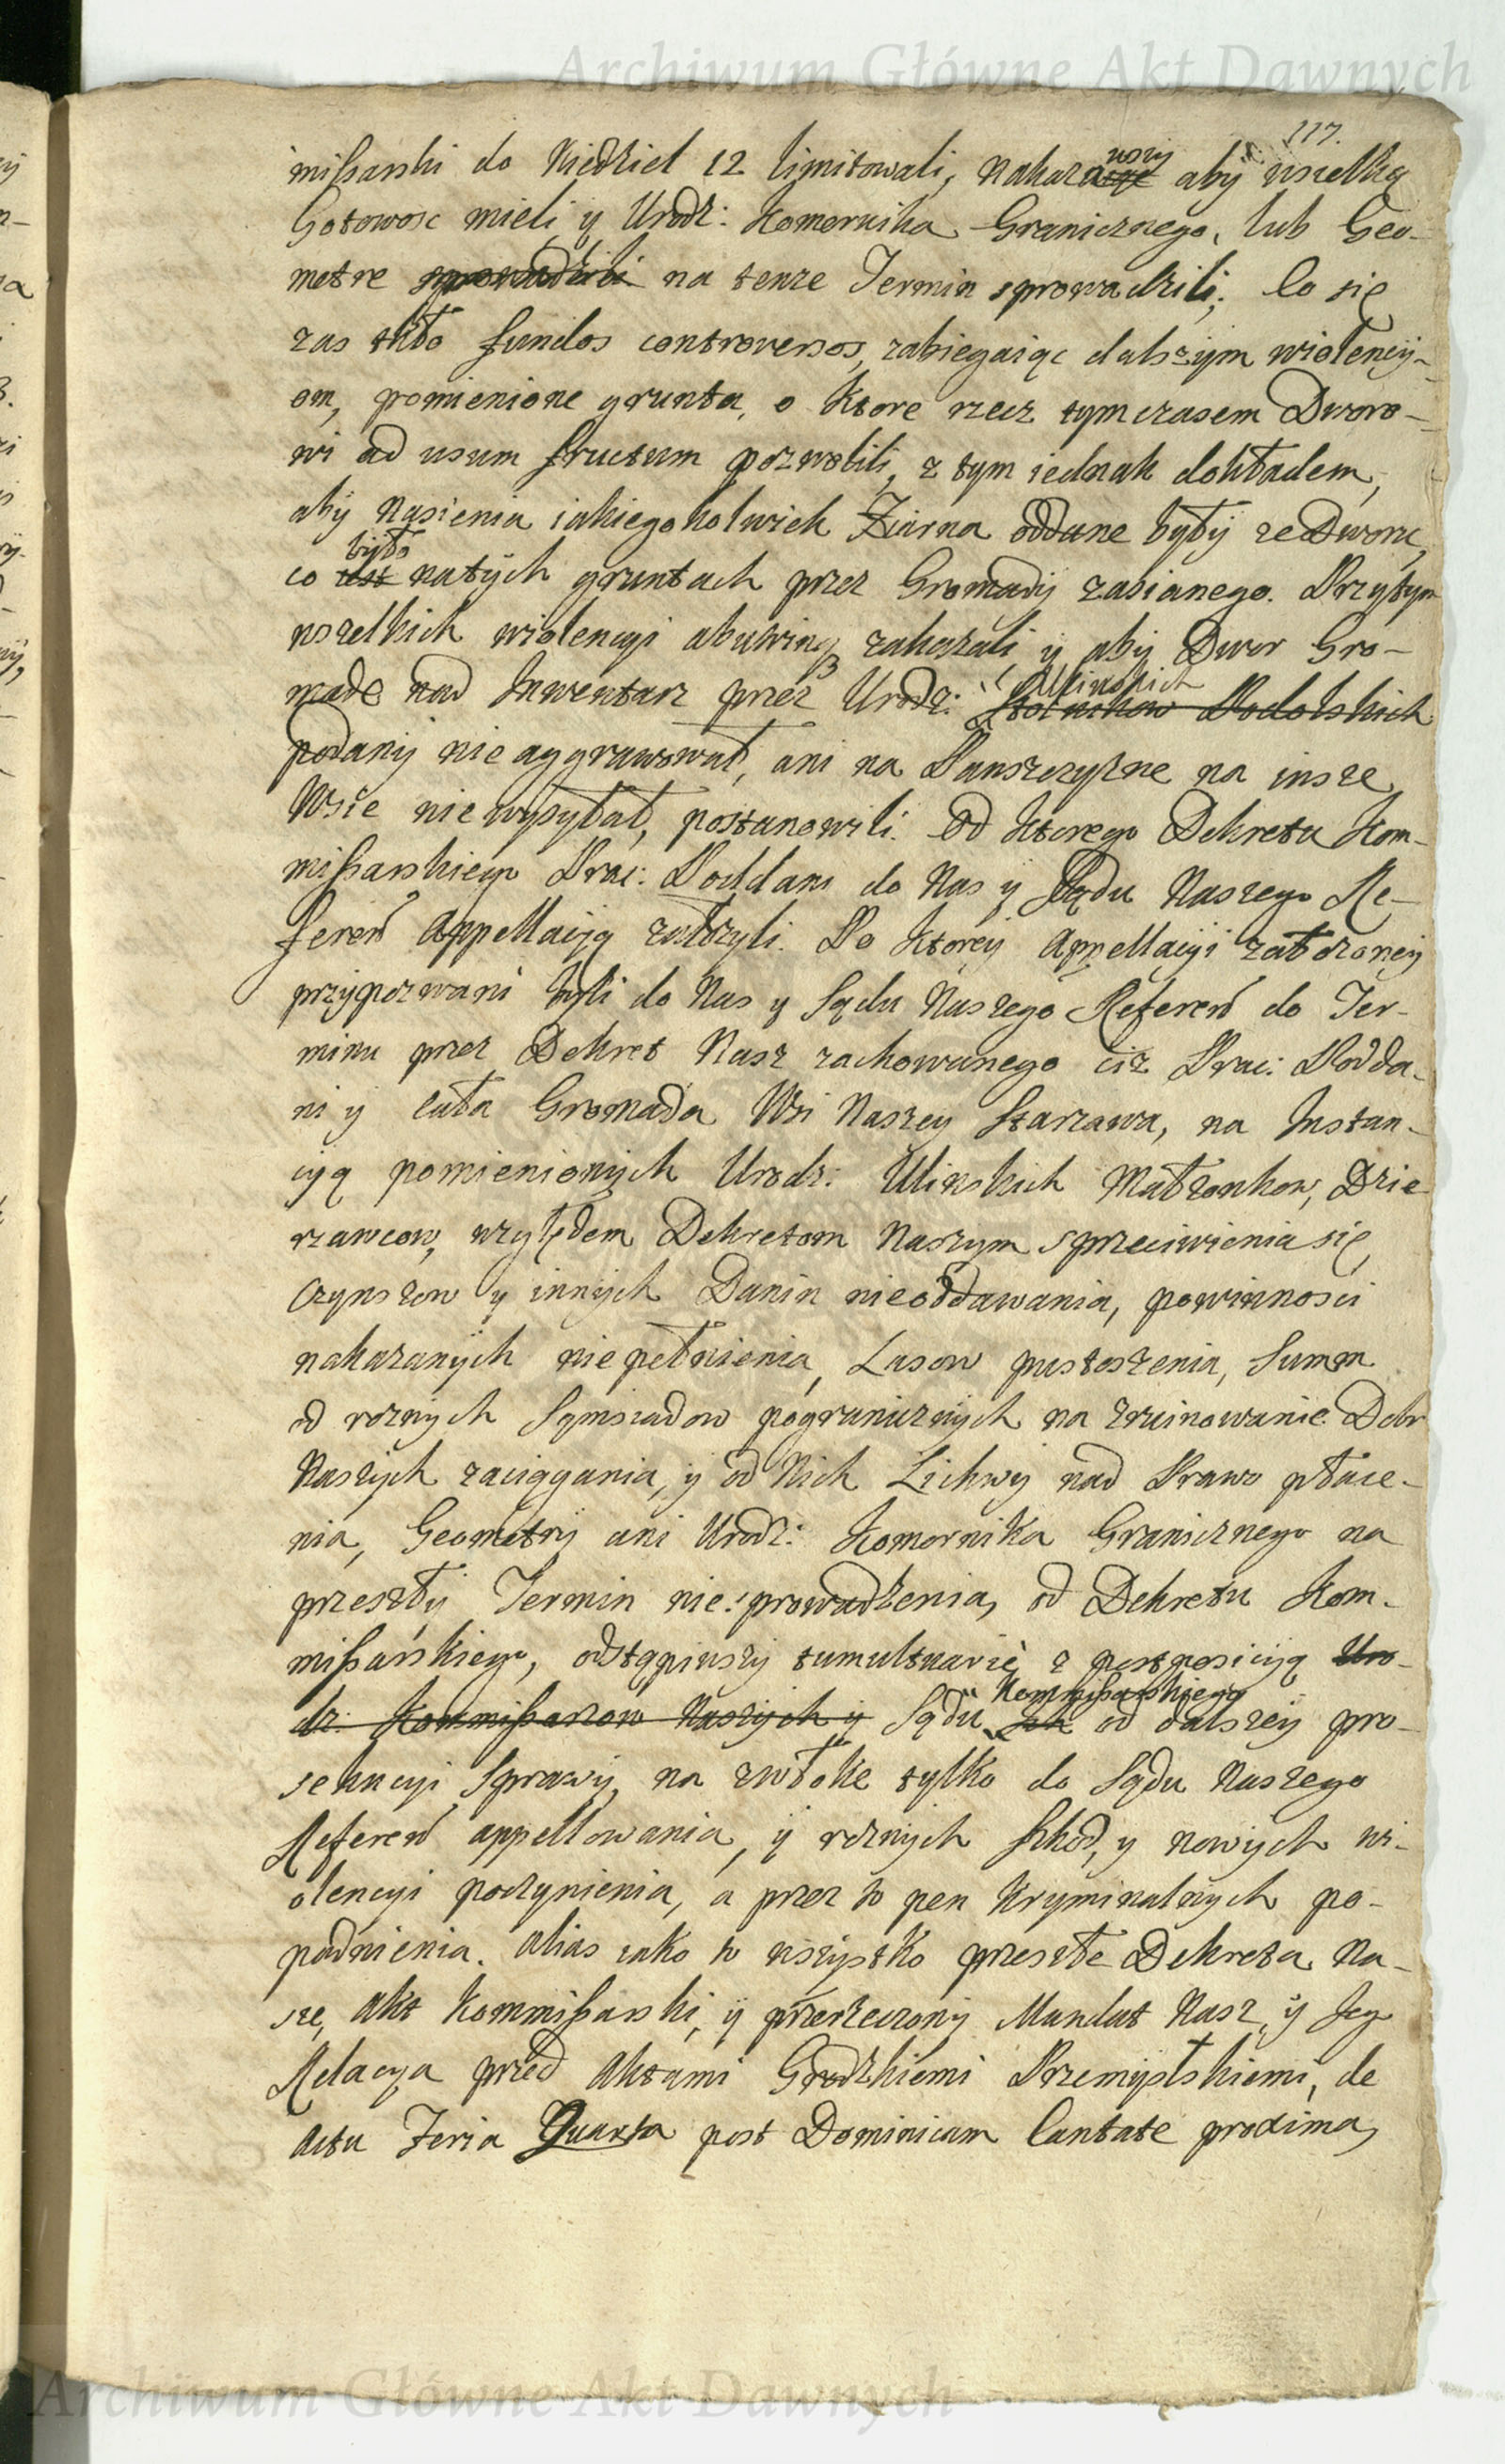 Archiwum Główne Akt Dawnych
117.
mißarski do Niedziel 12 limitowali, nakazawszy aby wszelką
Gotowosc mieli y Urodz: Komornika Granicznego, lub Geo-
metre sprowadzili na tenze Termin sprowadzili; Co się
zas tkło fundos controversos, zabiegaiąc dalszym wiolency-
om, pomienione grunta, o ktore rzecz tymczasem Dworo-
wi ad usum fructum pozwolili, z tym iednak dokładem,
aby Nasienia iakiegokolwiek Ziarna oddane były ze Dworu,
co iest było na tych gruntach przez Gromady zasianego. Przytym
wszelkich wiolencyi abutring zakazali, y aby Dwor Gro-
made nad Inwentarz przez Urodz: Stolnikow Podolskich Ulinskich
podany nie aggrawował, ani na Panszczyzne na insze
Wsie nie wysyłał, postanowili. Od ktorego Dekretu Kom-
mißarskiego Prac: Poddani do Nas y Sądu Naszego Re-
feren appellacyą założyli. Do ktorey Appellacyi założoney
przypozwani byli do Nas y Sądu Naszego Referen do Ter-
minu przez Dekret Nasz zachowanego ciz Prac: Podda-
ni y cała Gromada Wsi Naszey Starzawa, na Instan-
cyą pomienionych Urodz: Ulinskich Małzonkow, Dzie-
rzawcow, względem Dekretom Naszym sprzeciwienia się,
Czynszow y innych Danin nieoddawania, powinnosci
nakazanych niepełnienia, Lasow pustoszenia, Summ
od roznych Sąmsiadow pogranicznych na zruinowanie Dobr
Naszych zaciągania, y od Nich Lichwy nad Prawo płace-
nia, Geometry ani Urodz: Komornika Granicznego na
przeszły Termin niesprowadzenia, od Dekretu Kom-
mißarskiego, odstąpiwszy tumultuariè z postposicyą Uro-
dz: Kommißarzow Naszych y Sądu Kommißarskiego od dalszey pro-
sekucyi Sprawy, na zwłoke tylko do Sądu Naszego
Referen appellowania, y roznych Szkod, y nowych wi-
olencyi poczynienia, a przez to pen kryminalnych po-
padnienia. Alias iako to wszystko przeszłe Dekreta Na-
sze, Akt Kommißarski, y przerzeczony Mandat Nasz, y Jego
Relacya przed Aktami Grodzkiemi Przemyslskiemi, de
Actu Feria Quarta post Dominicam Cantate proxima,
Archiwum Główne Akt Dawnych